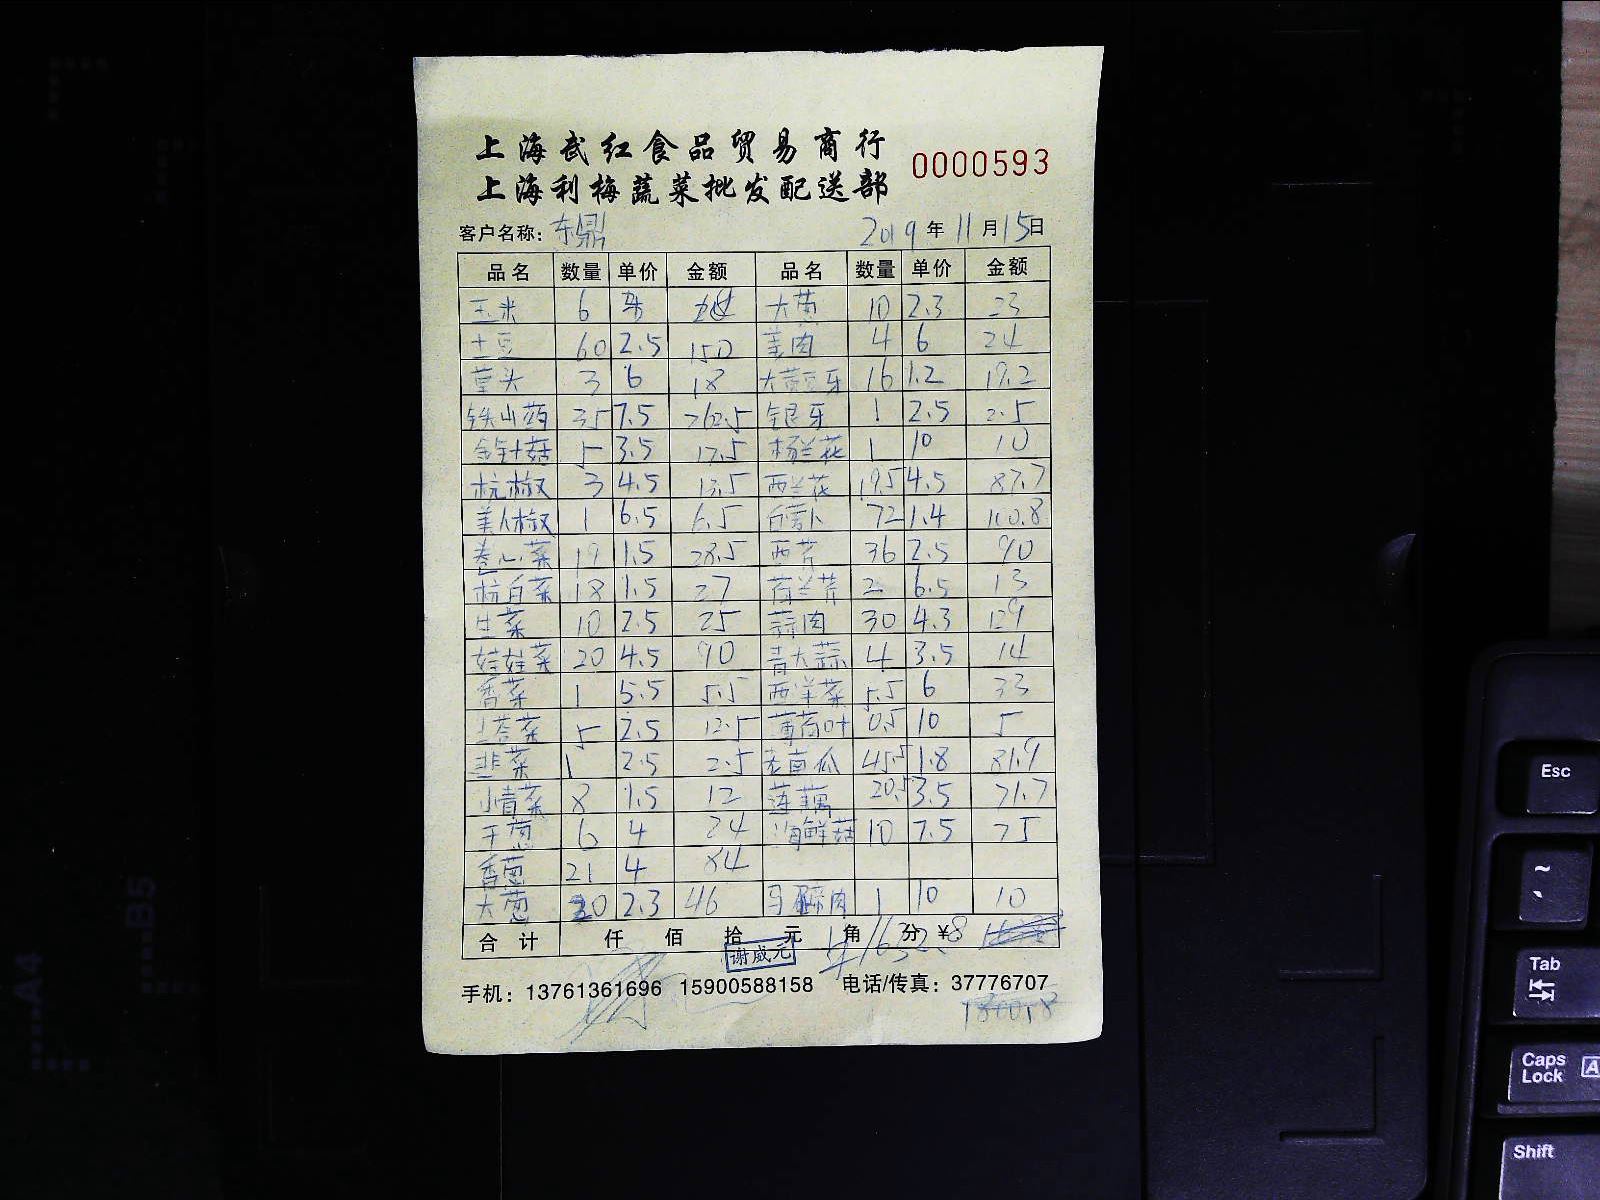 上海武红食品贸易商行
上海利梅蔬菜批发配送部
0000593
客户名称：东鼎 2019年11月15日
品名 数量 单价 金额 品名 数量 单价 金额
玉米 6 大葱 10 2.3 23
土豆 60 2.5 150 姜肉 4 6 24
3 6 18 16 1.2 19.2
铁山药 35 7.5 262.5 银牙 1 2.5 2.5
金针菇 5 3.5 17.5 杨兰花 1 10 10
杭椒 3 4.5 13.5 西兰花 19.5 4.5 87.7
美人椒 1 6.5 6.5 白萝卜 72 1.4 100.8
卷心菜 19 1.5 28.5 西芹 36 2.5 90
杭白菜 18 1.5 27 荷兰芹 2 6.5 13
生菜 10 2.5 25 蒜肉 30 4.3 129
娃娃菜 20 4.5 90 青大蒜 4 3.5 14
香菜 1 5.5 5.5 西洋菜 5.5 6 33
塔菜 5 2.5 12.5 薄荷叶 0.5 10 5
韭菜 1 2.5 2.5 老南瓜 45.5 1.8 81.9
小青菜 8 1.5 12 莲藕 20.5 3.5 71.7
干葱 6 4 24 海鲜菇 10 7.5 75
香葱 21 4 84
大葱 20 2.3 46 马蹄肉 1 10 10
合计 仟 佰 拾 元 角 分 ¥
谢威元
手机：13761361696 15900588158 电话/传真：37776707
Esc
~
Tab
Caps Lock
A
Shift
B5
A4